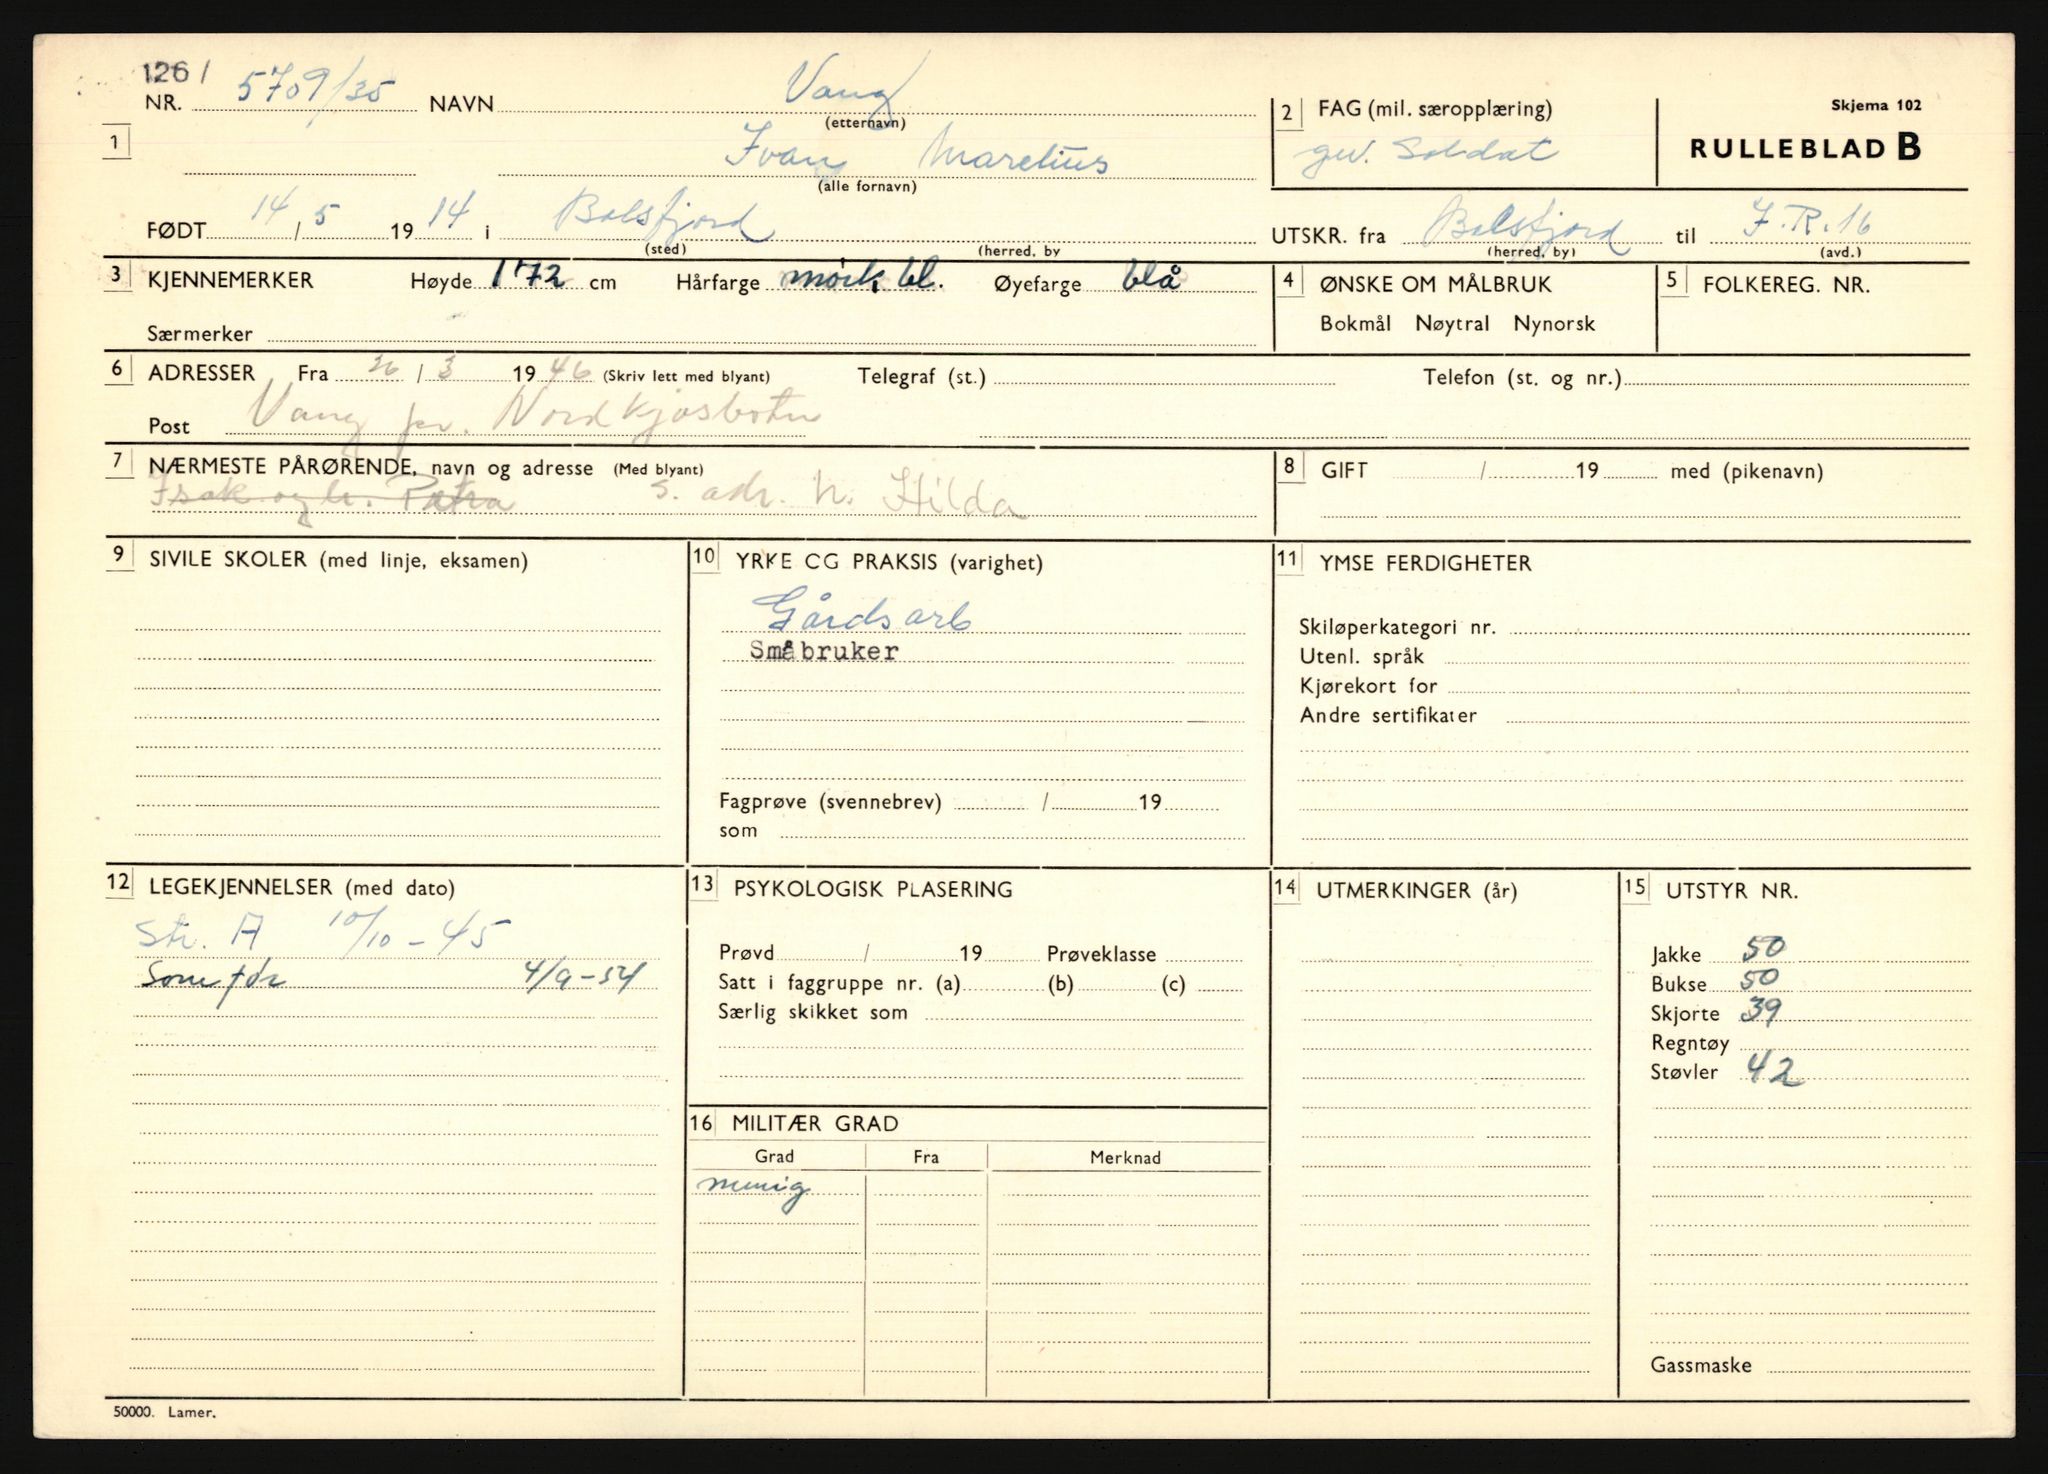 1261
NR. 5709/35 NAVN Vang
(etternavn)
1 Ivan Marelius
(alle fornavn)
2 FAG (mil. særopplæring)
gev. Soldat
Skjema 102
RULLEBLAD B
FØDT 14/5 1914 i Balsfjord
(sted) (herred, by
UTSKR. fra Balsfjord til I.R. 16
(herred, by) (avd.)
3 KJENNEMERKER Høyde 172 cm Hårfarge mörk bl. Øyefarge blå
Særmerker
4 ØNSKE OM MÅLBRUK
Bokmål Nøytral Nynorsk
5 FOLKEREG. NR.
6 ADRESSER Fra 26/3 1946 (Skriv lett med blyant) Telegraf (st.) Telefon (st. og nr.)
Post Vang pr. Nordkjosbotn
7 NÆRMESTE PÅRØRENDE, navn og adresse (Med blyant)
Isak og h. Petra s. adr. h. Hilda
8 GIFT / 19 med (pikenavn)
9 SIVILE SKOLER (med linje, eksamen)
10 YRKE CG PRAKSIS (varighet)
Gårdsarb
Småbruker
Fagprøve (svennebrev) / 19
som
11 YMSE FERDIGHETER
Skiløperkategori nr.
Utenl. språk
Kjørekort for
Andre sertifikater
12 LEGEKJENNELSER (med dato)
Str. A 10/10-45
Som før 4/9-54
13 PSYKOLOGISK PLASERING
Prøvd / 19 Prøveklasse
Satt i faggruppe nr. (a) (b) (c)
Særlig skikket som
14 UTMERKINGER (år)
15 UTSTYR NR.
Jakke 50
Bukse 50
Skjorte 39
Regntøy
Støvler 42
Gassmaske
16 MILITÆR GRAD
Grad Fra Merknad
menig
50000. Lamer.